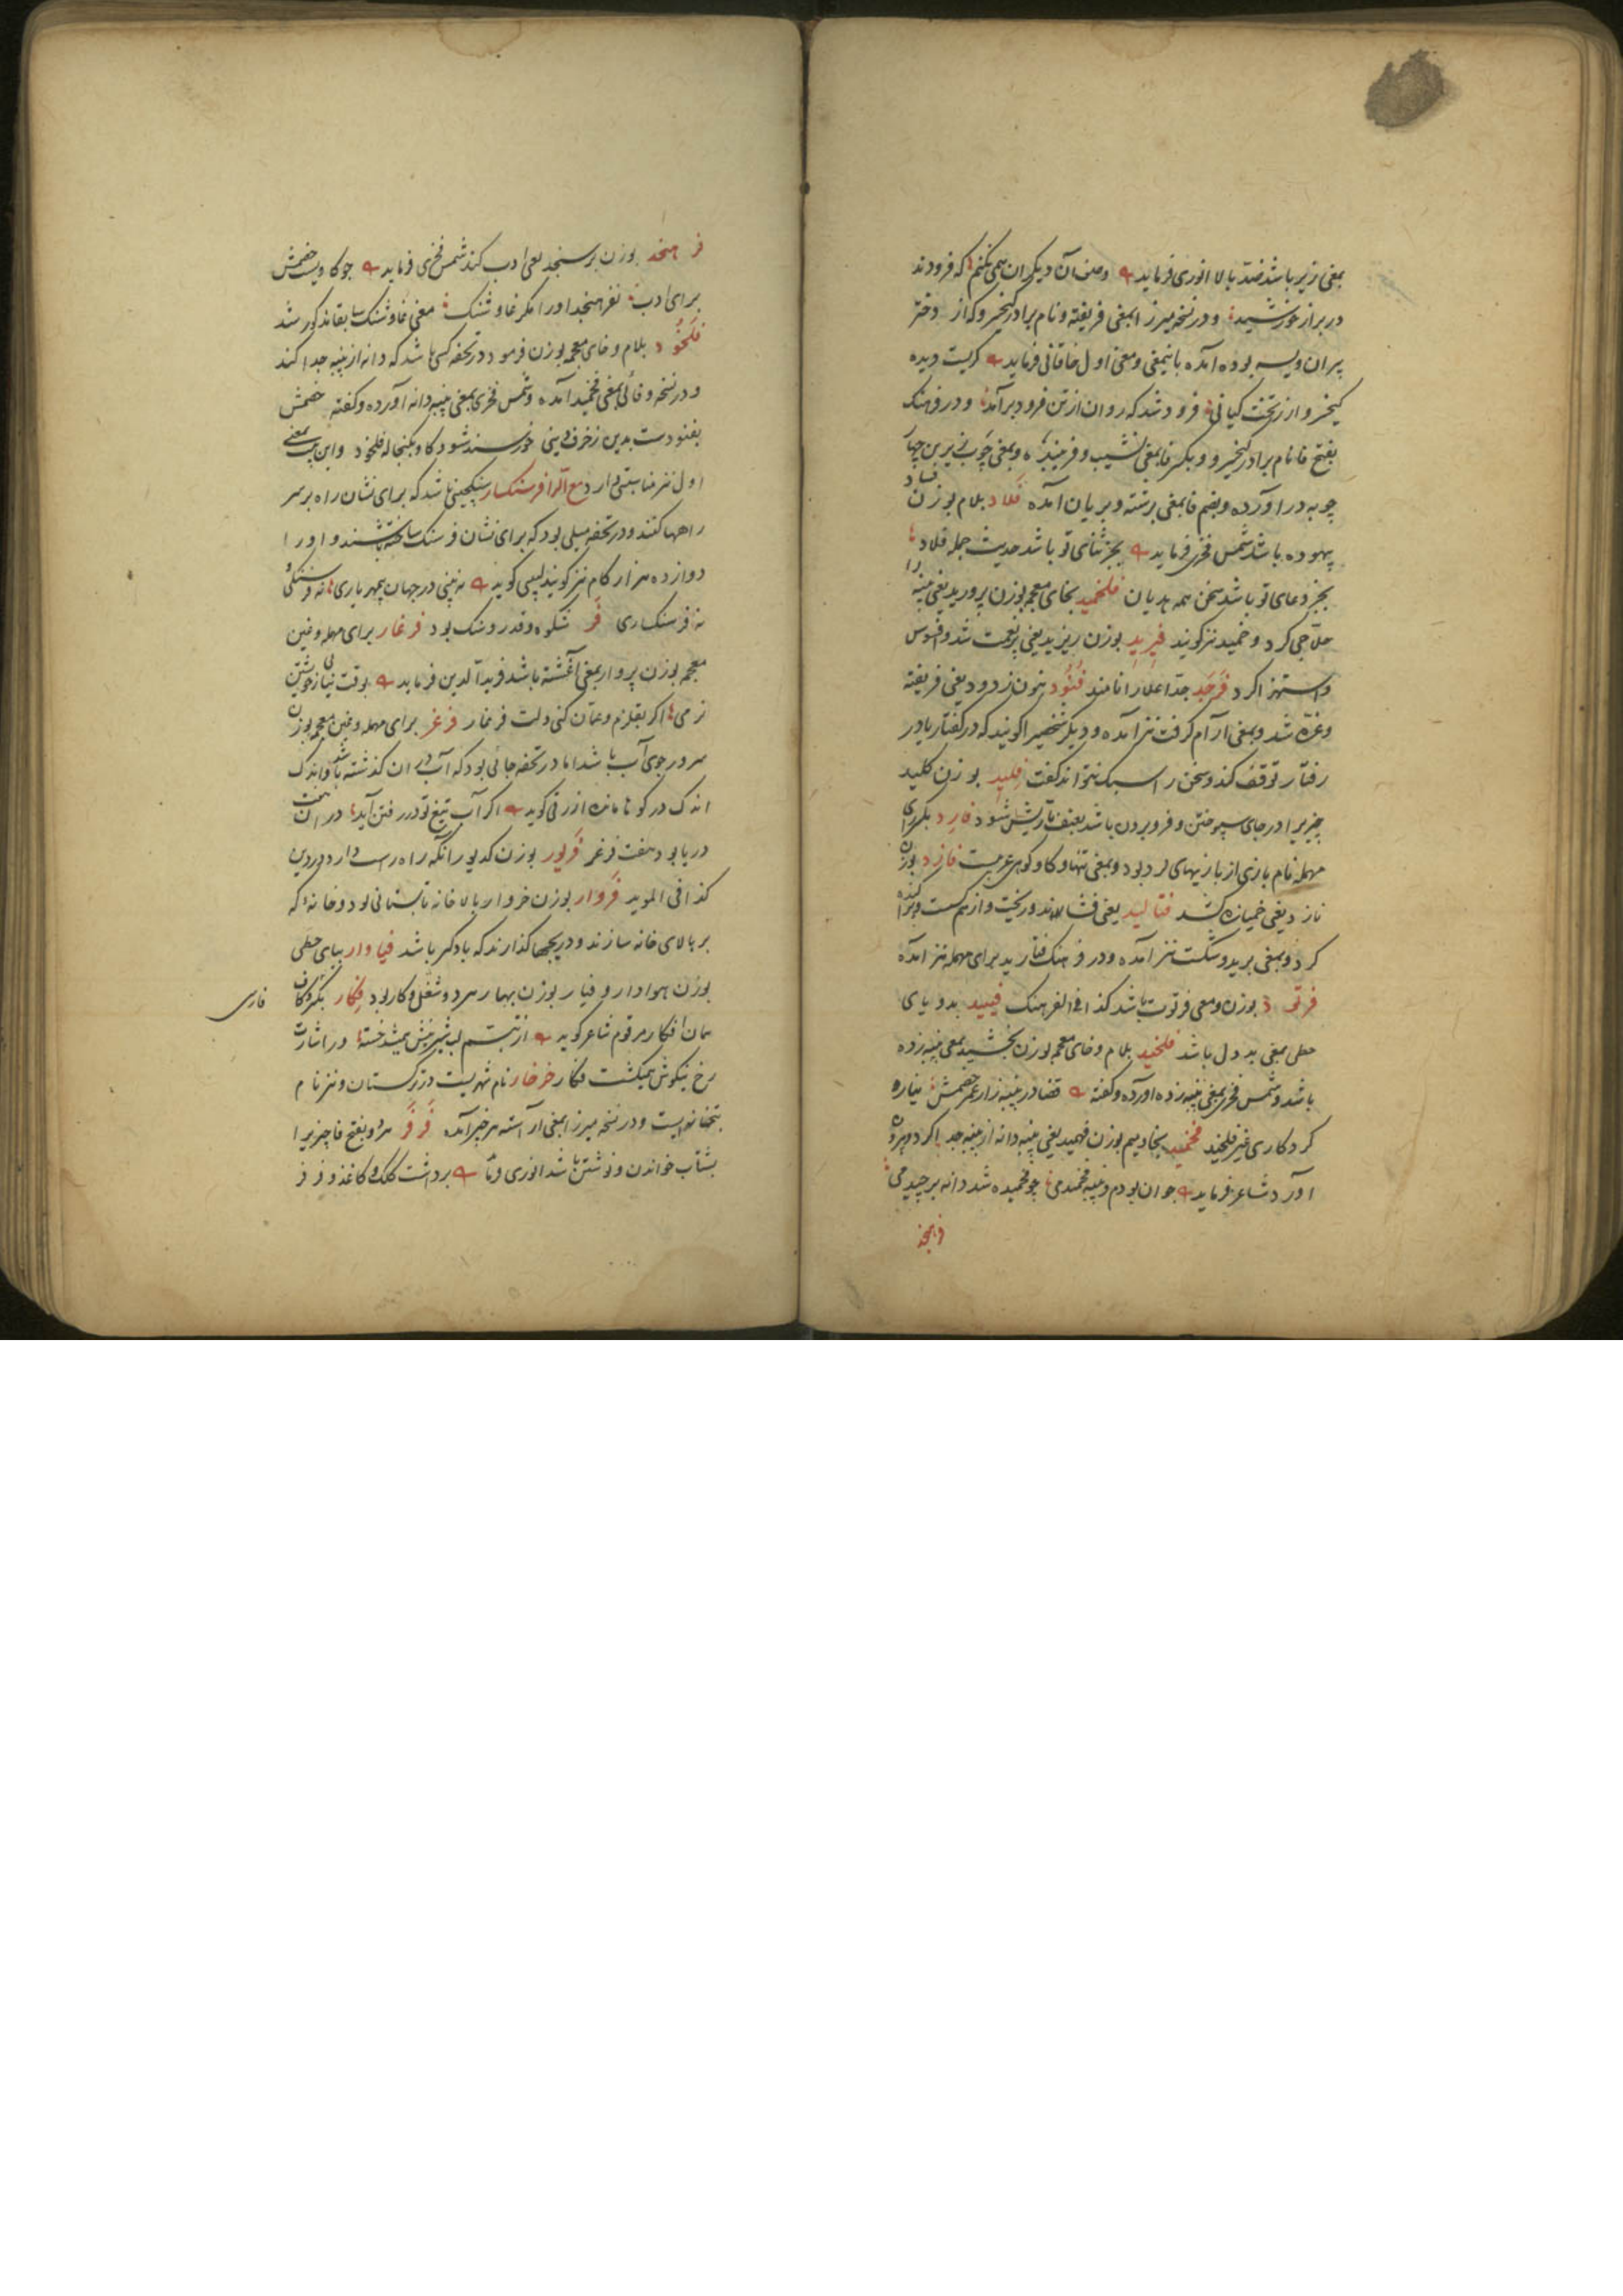 بمعنی زیر باشد ضد بالا انوری فرماید وصف آن دیگران همی نکنم که فرودند
در برابر خورشید و در نسخه میرزا بمعنی فریفته و نام برادر کیخسرو که از دختر
پیران ویسه بوده آمده باینمعنی و معنی اول خاقانی فرماید گریست دیده
کیخسرو از تخت کیانی فرود شد که روان از تن فرود برآمد و در فرهنگ
بفتح فا نام برادر کیخسرو و بکسر فا بمعنی نشیب و بمعنی چوب زیرین
چوبه در آورده و بضم فا بمعنی برشته و بریان آمده فلاد بلام بوزن فساد
بیهوده باشد شمس فخری فرماید بجز ثنای تو باشد حدیث جمله فلاد
بجز دعای تو باشد سخن همه هذیان فلخمید بخای معجمه بوزن پرورید یعنی پنبه را
حلاجی کرد و خمید نیز گویند فیرید بوزن ریزید یعنی پر نعمت شد و افسوس
و استهزا کرد فرجد جد اعلا را نامند فنود بنون زدود یعنی فریفته
و غره شد و بمعنی آرام گرفت نیز آمده و دیگر شخصیرا گویند که در گفتار یا در
رفتار توقف کند و سخن را سبک نتواند گفت فلید بوزن کلید
چیزیرا در جای سپوختن و فرو بردن باشد بعنف تا ریش شود فارد بکسر رای
مهمله نام بازی از بازیهای نرد بود و بمعنی تنها و گاو کوهی عربیست فاژد بوزن
ناژد یعنی خمیازه کشد فتالید یعنی فشاند و ریخت و از هم گسست و پراکنده
کرد و بمعنی برید و شکست نیز آمده و در فرهنگ فتارید برای مهمله نیز آمده
فرتود بوزن و معنی فرتوت باشد کذا فی الفرهنگ فیید بدو یای
حطی بمعنی بد دل باشد فلخید بلام و خای معجمه بوزن بخشید بمعنی پنبه زده
باشد و شمس فخری بمعنی پنبه زده آورده و گفته قضا در پنبه زار عمر خصمش نیاره
کرد کاری غیر فلخید فخمید بخا و میم بوزن فهمید یعنی پنبه دانه از پنبه جدا کرد و بیرون
آورد شاعر فرماید جوان بودم و پنبه فخمیدمی چو فخمیده شد دانه برچیدمی
فرهنجد
فرهنجد بوزن برسنجد یعنی ادب کند شمس فخری فرماید چو گاویست خصمش
برای ادب نفرهنجد او را مگر غاوشنگ معنی غاوشنگ سابقا مذکور شد
فلخود بلام و خای معجمه بوزن فرمود در تحفه کسی باشد که دانه از پنبه جدا کند
و در نسخه وفائی بمعنی فخمید آمده و شمس فخری بمعنی پنبه دانه آورده و گفته خصمش
بغنودست بدین زخرف دنیی خورسند شود گاو بکنجاله فلخود و این بیت بمعنی
اول نیز مناسبتی دارد مع الرا فرسنگسار سنگچینی باشد که برای نشان راه بر سر
راهها کنند و در تحفه میلی بود که برای نشان فرسنگ ساخته باشند و او را
دوازده هزار گام نیز گویند لبیبی گوید نه بینی در جهان بی مهر یاری نه فرسنگی
نه فرسنگساری فر شکوه و قدر و سنگ بود فرغار برای مهمله و غین
معجمه بوزن پروار بمعنی آغشته باشد فرید الدین فرماید بوقت نیازی خویشتن
نرمی اگر بقلزم و عمان کنی دلت فرغار فرغر برای مهمله و غین معجمه بوزن
سرور جوی آب باشد اما در تحفه جائی بود که آب در ان گذشته باشد و اندک
اندک در گوها مانده ازرقی گوید اگر آب تیغ تو در رفتن آید در آن سمت
دریا بود هفت فرغر فریور بوزن کدیور آنکه راه راست دارد در دین
کذا فی الموید فروار بوزن خروار بالاخانه تابستانی بود و خانه که
بر بالای خانه سازند و دریچها گذارند که بادگیر باشد فیاوار بیای حطی
بوزن هوادار و فیار بوزن بهار هر دو شغل و کار بود فگار بکسر و کاف
فارسی
همان افگار مرقوم شاعر گوید از تبسم لب شیرینش میشد خسته در اشارت
رخ نیکوش همیگشت فگار فرخار نام شهریست در ترکستان و نیز نام
بتخانه ایست و در نسخه میرزا بمعنی آراسته نیز آمده فرفر و بفتح فا چیزیرا
بشتاب خواندن و نوشتن باشد انوری برداشت کلک و کاغذ و فرفر